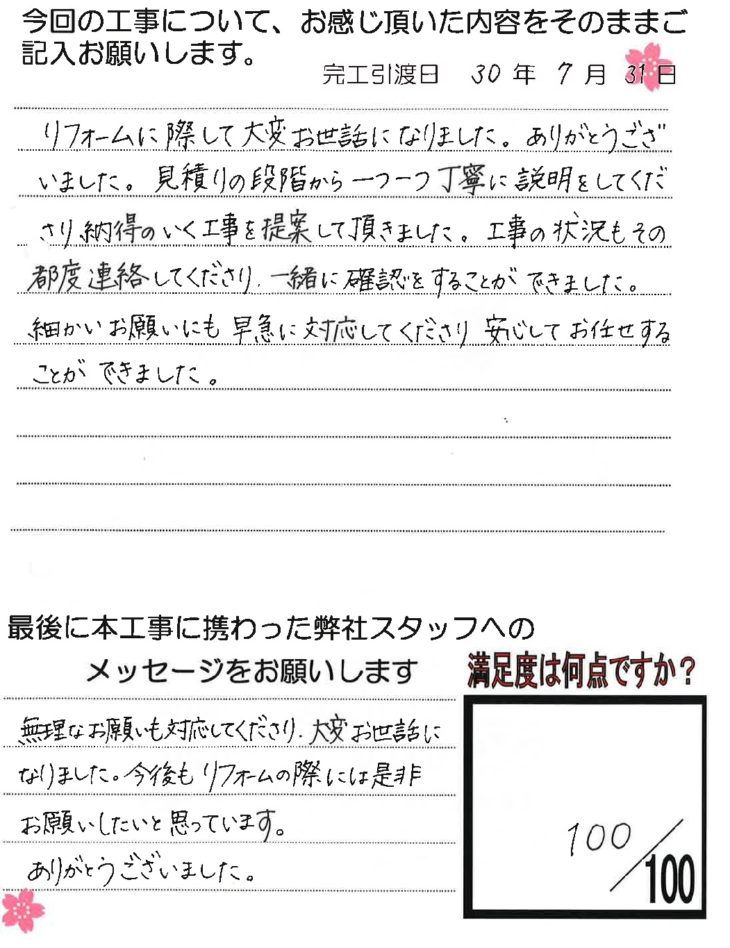 今回の工事について、お感じ頂いた内容をそのままご
記入お願いします。
完工引渡日 30 年 7 月 31 日
リフォームに際して大変お世話になりました。ありがとうござ
いました。見積りの段階から一つ一つ丁寧に説明をしてくだ
さり納得のいく工事を提案して頂きました。工事の状況もその
都度連絡してくださり、一緒に確認をすることができました。
細かいお願いにも早急に対応してくださり 安心してお任せする
ことができました。
最後に本工事に携わった弊社スタッフへの
メッセージをお願いします
無理なお願いも対応してくださり、大変お世話に
なりました。今後もリフォームの際には是非
お願いしたいと思っています。
ありがとうございました。
満足度は何点ですか？
100/100